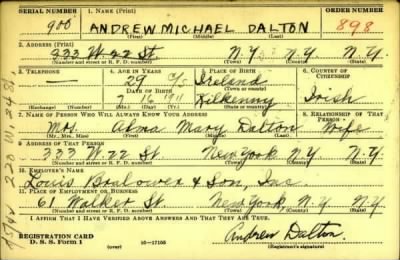 SERIAL NUMBER 1. NAME (Print) ORDER NUMBER
900 ANDREW MICHAEL DALTON 898
(First) (Middle) (Last)
2. ADDRESS (Print)
333 W 22 St. N.Y. N.Y. N.Y.
(Number and street or R. F. D. number) (Town) (County) (State)
3. TELEPHONE 4. AGE IN YEARS 5. PLACE OF BIRTH 6. COUNTRY OF CITIZENSHIP
29 Ireland
DATE OF BIRTH (Town or county)
7 16 191 Kilkenny Irish
(Exchange) (Number) (Mo.) (Day) (Yr.) (State or country)
7. NAME OF PERSON WHO WILL ALWAYS KNOW YOUR ADDRESS 8. RELATIONSHIP OF THAT PERSON
Mrs. Alma Mary Dalton Wife
(Mr., Mrs., Miss) (First) (Middle) (Last)
9. ADDRESS OF THAT PERSON
333 W 22 St New York N.Y. N.Y.
(Number and street or R. F. D. number) (Town) (County) (State)
10. EMPLOYER'S NAME
Louis & Son, Inc.
11. PLACE OF EMPLOYMENT OR BUSINESS
61 Walker St. New York N.Y. N.Y.
(Number and street or R. F. D. number) (Town) (County) (State)
I AFFIRM THAT I HAVE VERIFIED ABOVE ANSWERS AND THAT THEY ARE TRUE.
REGISTRATION CARD
D. S. S. Form 1 (over) 16—17105 Andrew Dalton.
(Registrant's signature)